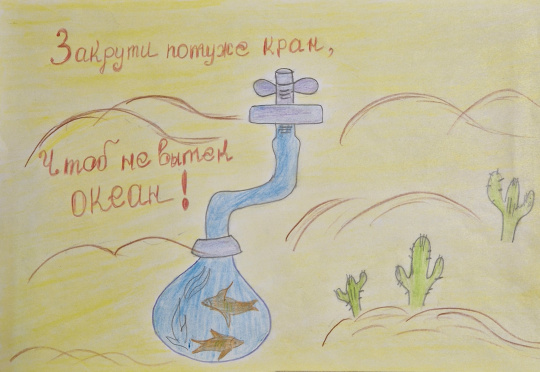 Закрути потуже кран,
Чтоб не вытек
океан!